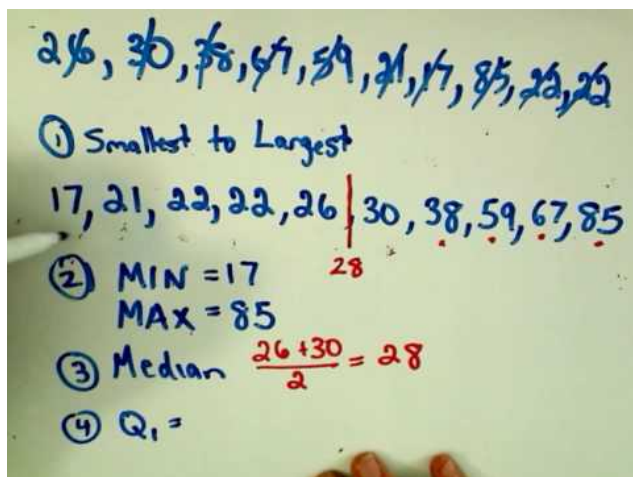 26, 30, 38, 67, 59, 21, 17, 85, 22, 22
① Smallest to Largest
17, 21, 22, 22, 26, 30, 38, 59, 67, 85
28
② MIN = 17
MAX = 85
③ Median (26+30)/2 = 28
④ Q₁ =